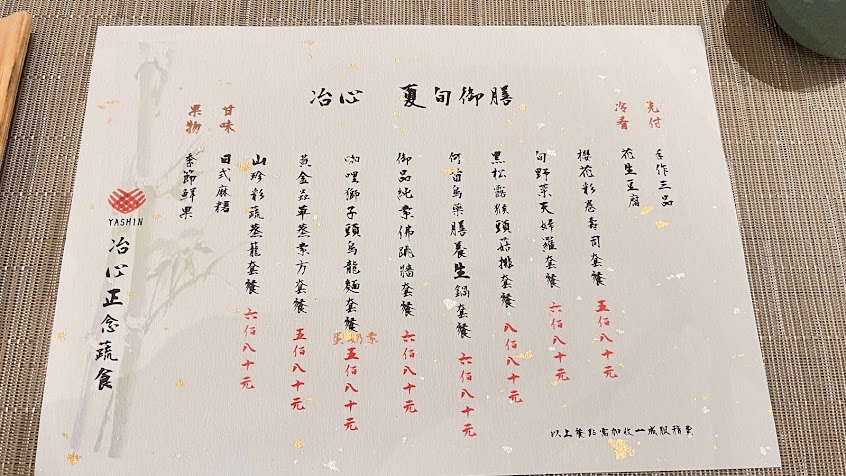 冶心 夏旬御膳
先付
手作三品
冷肴
花生豆腐
櫻花彩卷壽司套餐 五佰八十元
旬野菜天婦羅套餐 六佰八十元
黑松露猴頭菇排套餐 八佰八十元
何首烏藥膳養生鍋套餐 六佰八十元
御品純素佛跳牆套餐 六佰八十元
咖哩獅子頭烏龍麵套餐 五佰八十元
蛋奶素
黃金蟲草蒸素方套餐 五佰八十元
山珍彩蔬蒸籠套餐 六佰八十元
甘味
日式麻糬
果物
季節鮮果
YASHIN
冶心正念蔬食
以上餐點需加收一成服務費